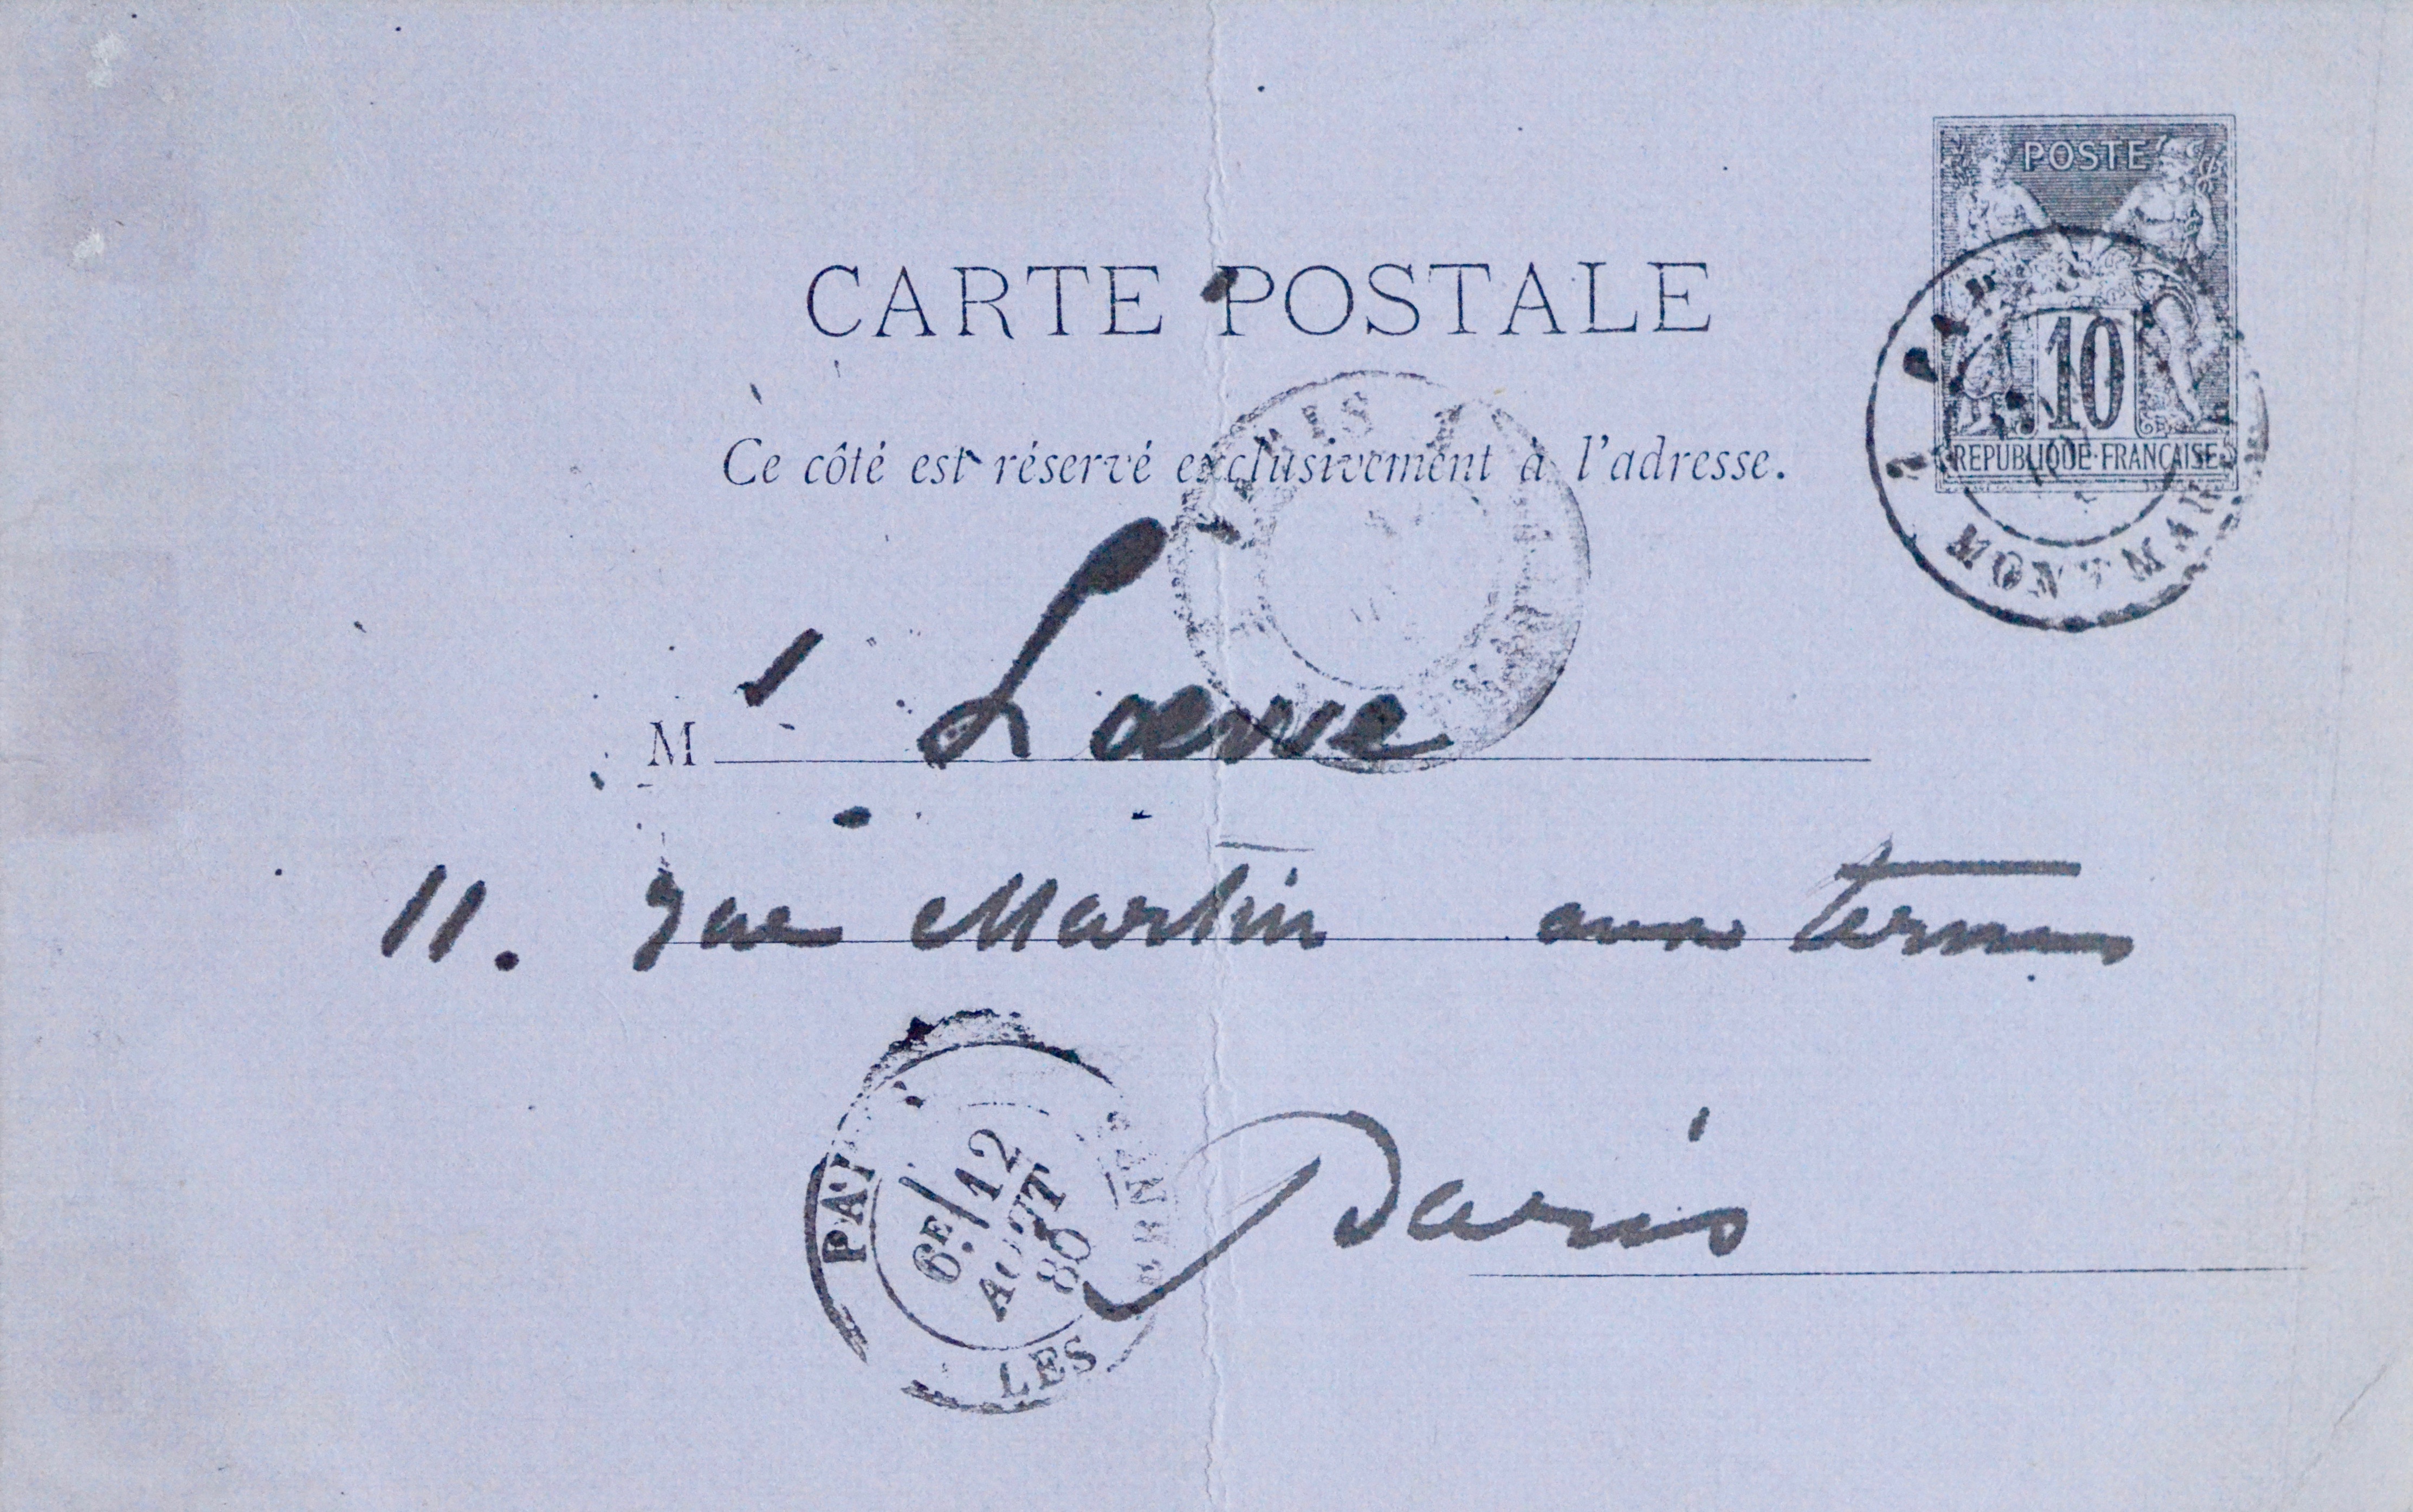 POSTE
10
REPUBLIQUE FRANÇAISE
CARTE POSTALE
Ce côté est réservé exclusivement à l'adresse.
M Loewe
11. rue Martin aux Ternes
Paris
6E 12
AOUT
80
LES